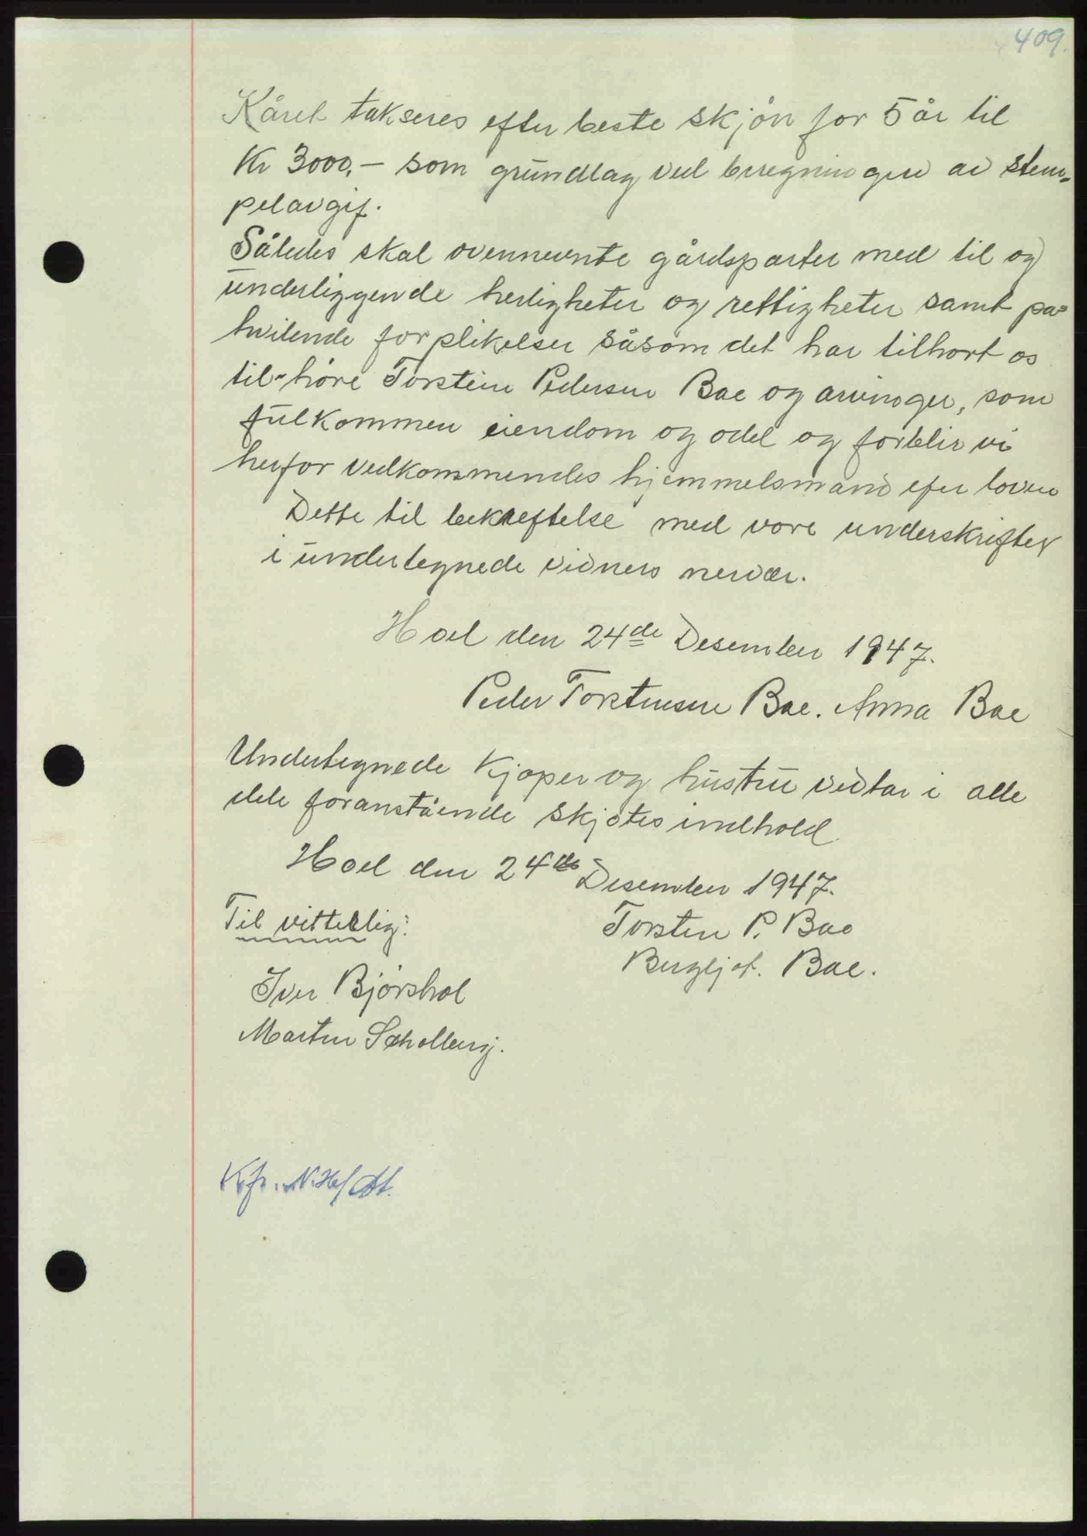 409.
Kåret takseres efter beste skjön for 5 år til
Kr 3000,- som grundlag ved beregningen av stem-
pelavgif.
Således skal ovennevnte gårdsparter med til og
underliggende herligheter og rettigheter samt på-
hvilende forplikelser såsom det har tilhort os
til-høre Torstein Pedersen Bae og arvinger, som
fulkommen eiendom og odel og forblir vi
herfor vedkommendes hjemmelsmand efer loven
Dette til bekreftelse med vore underskrifter
i undertegnede vidners nervær.
Hoel den 24de Desember 1947.
Peder Torstensen Bae. Anna Bae
Undertegnede Kjøper og hustru vedtar i alle
dele foranstående skjötes indhold
Hoel den 24de Desember 1947.
Til vitterlig:
Torsten P. Bae
Bergljot. Bae.
Iver Björshol
Martin Scholberg.
Kfr. N.H/